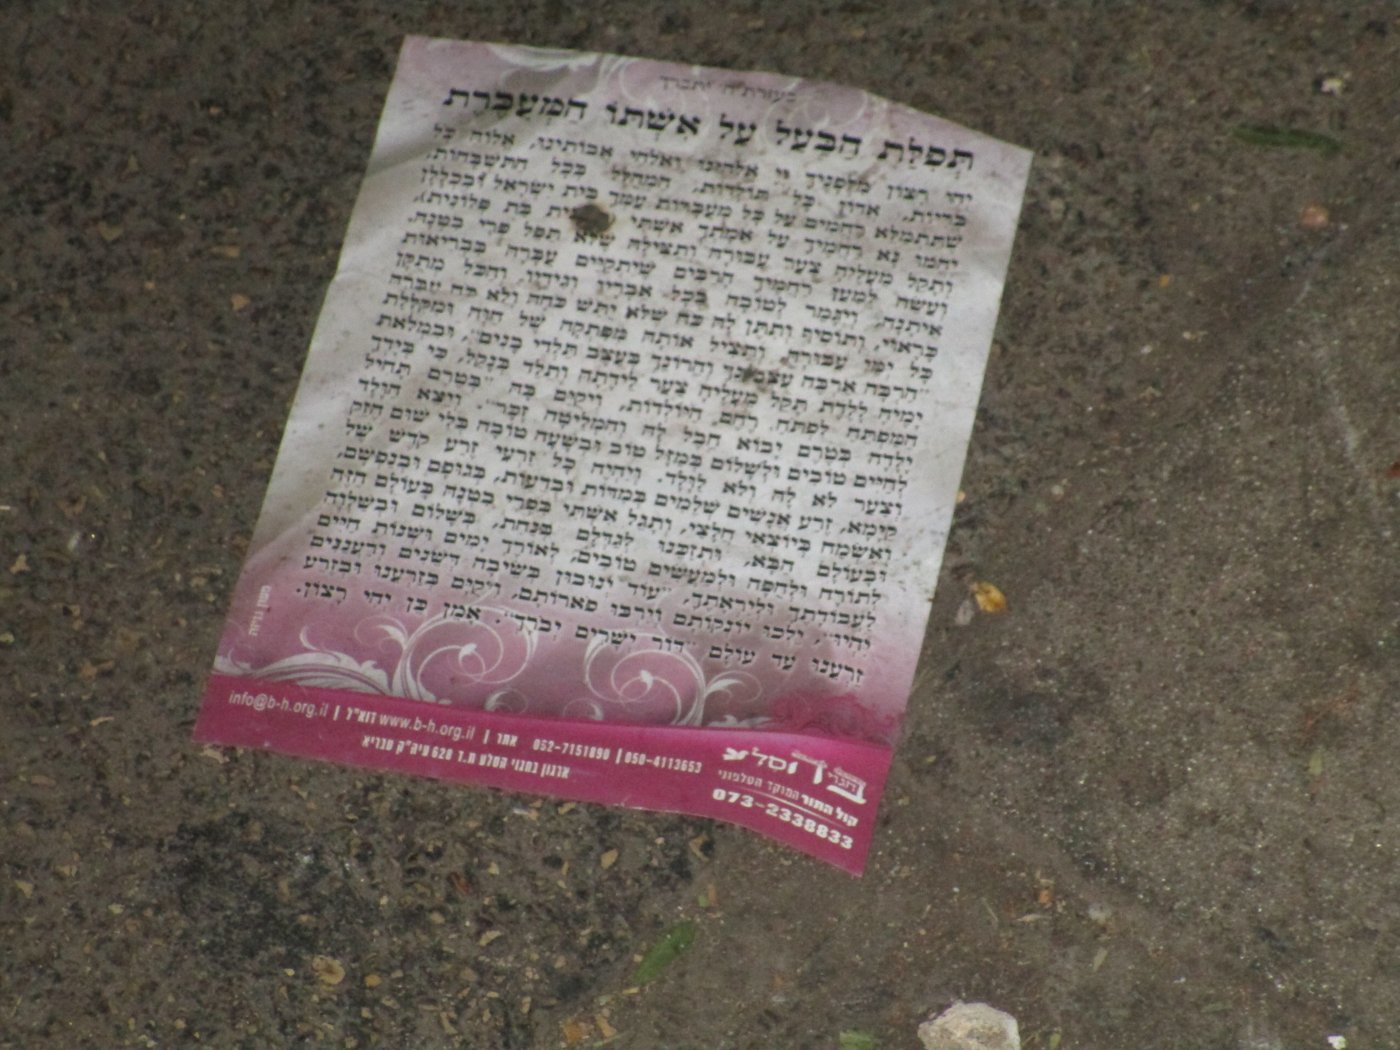 בעזרת ה' יתברך
תְּפִלַּת הַבַּעַל עַל אִשְׁתּוֹ הַמְעֻבֶּרֶת
יְהִי רָצוֹן מִלְּפָנֶיךָ יְיָ אֱלֹהֵינוּ וֵאלֹהֵי אֲבוֹתֵינוּ, אֱלוֹהַּ כָּל
בְּרִיּוֹת, אֲדוֹן כָּל תּוֹלָדוֹת, הַמְהֻלָּל בְּכָל הַתִּשְׁבָּחוֹת,
שֶׁתִּתְמַלֵּא רַחֲמִים עַל כָּל מְעֻבְּרוֹת עַמְּךָ בֵּית יִשְׂרָאֵל וּבִכְלָלָן
יֶהֱמוּ נָא רַחֲמֶיךָ עַל אֲמָתְךָ אִשְׁתִּי בַּת פְּלוֹנִית),
וְתָקֵל מֵעָלֶיהָ צַעַר עִבּוּרָהּ וְתַצִּילָהּ שֶׁלֹּא תַּפִּל פְּרִי בִטְנָהּ,
וַעֲשֵׂה לְמַעַן רַחֲמֶיךָ הָרַבִּים שֶׁיִּתְקַיֵּם עֻבָּרָהּ בִּבְרִיאוּת
אֵיתָנָה, וְיִגָּמֵר לְטוֹבָה בְּכָל אֵבָרָיו וְגִידָיו, וְהַכֹּל מְתֻקָּן
כָּרָאוּי, וְתוֹסִיף וְתִתֶּן לָהּ כֹּחַ שֶׁלֹּא יֻתַּשׁ כֹּחָהּ וְלֹא כֹּחַ עֻבָּרָהּ
כָּל יְמֵי עִבּוּרָהּ, וְתַצִּיל אוֹתָהּ מִפִּתְקָהּ שֶׁל חַוָּה וּמִקִּלְלַת
"הַרְבָּה אַרְבֶּה עִצְּבוֹנֵךְ וְהֵרוֹנֵךְ בְּעֶצֶב תֵּלְדִי בָנִים", וּבִמְלֹאת
יָמֶיהָ לָלֶדֶת תָּקֵל מֵעָלֶיהָ צַעַר לֵידָתָהּ וְתֵלֵד בְּנָקֵל, כִּי בְּיָדְךָ
הַמַּפְתֵּחַ לִפְתֹּחַ רֶחֶם הַיּוֹלְדוֹת, וִיקֻיַּם בָּהּ "בְּטֶרֶם תָּחִיל
יָלָדָה בְּטֶרֶם יָבוֹא חֵבֶל לָהּ וְהִמְלִיטָה זָכָר". וְיֵצֵא הַוָּלָד
לְחַיִּים טוֹבִים וּלְשָׁלוֹם בְּמַזָּל טוֹב וּבְשָׁעָה טוֹבָה בְּלִי שׁוּם הֶזֵּק
וְצַעַר לֹא לָהּ וְלֹא לַוָּלָד. וְיִהְיֶה כָּל זַרְעִי זֶרַע קֹדֶשׁ שֶׁל
קַיָּמָא, זֶרַע אֲנָשִׁים שְׁלֵמִים בְּמִדּוֹת וּבְדֵעוֹת, בְּגוּפָם וּבְנַפְשָׁם,
וְאֶשְׂמַח בְּיוֹצְאֵי חֲלָצַי, וְתָגֵל אִשְׁתִּי בִּפְרִי בִטְנָהּ בָּעוֹלָם הַזֶּה
וּבָעוֹלָם הַבָּא, וּתְזַכֵּנוּ לְגַדְּלָם בְּנַחַת, בְּשָׁלוֹם וּבְשַׁלְוָה
לְתוֹרָה וּלְחֻפָּה וּלְמַעֲשִׂים טוֹבִים, לְאוֹרֶךְ יָמִים וּשְׁנוֹת חַיִּים
לַעֲבוֹדָתְךָ וּלְיִרְאָתֶךָ, "עוֹד יְנוּבוּן בְּשֵׂיבָה דְּשֵׁנִים וְרַעֲנַנִּים
יִהְיוּ", יֵלְכוּ יוֹנְקוֹתָם וְיִרְבּוּ פֹּארוֹתָם, וִיקֻיַּם בְּזַרְעֵנוּ וּבְזֶרַע
זַרְעֵנוּ עַד עוֹלָם "דּוֹר יְשָׁרִים יְבֹרָךְ". אָמֵן כֵּן יְהִי רָצוֹן.
טעון גניזה
דוברי הסלע
קול התור המוקד הטלפוני
073-2338833
050-4113653 | 052-7151890 אתר | www.b-h.org.il דוא"ל | info@b-h.org.il
ארגון בחגוי הסלע ת.ד 620 עיה"ק טבריא